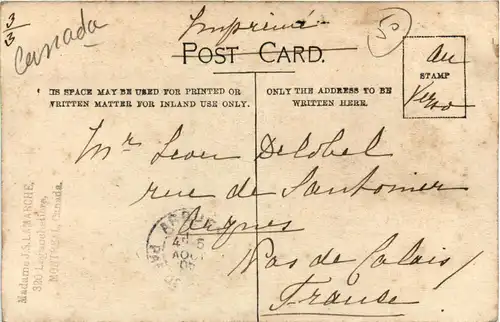 3/3
Canada
Imprimé
50
POST CARD.
THIS SPACE MAY BE USED FOR PRINTED OR
WRITTEN MATTER FOR INLAND USE ONLY.
ONLY THE ADDRESS TO BE
WRITTEN HERE.
au
STAMP
Verso
Mr Leon Delobel
rue de Saintomer
Arques
Pas de Calais
Franse
Madame J.A. LAMARCHE,
320 Lagauchetière,
MONTREAL, Canada.
AOUT